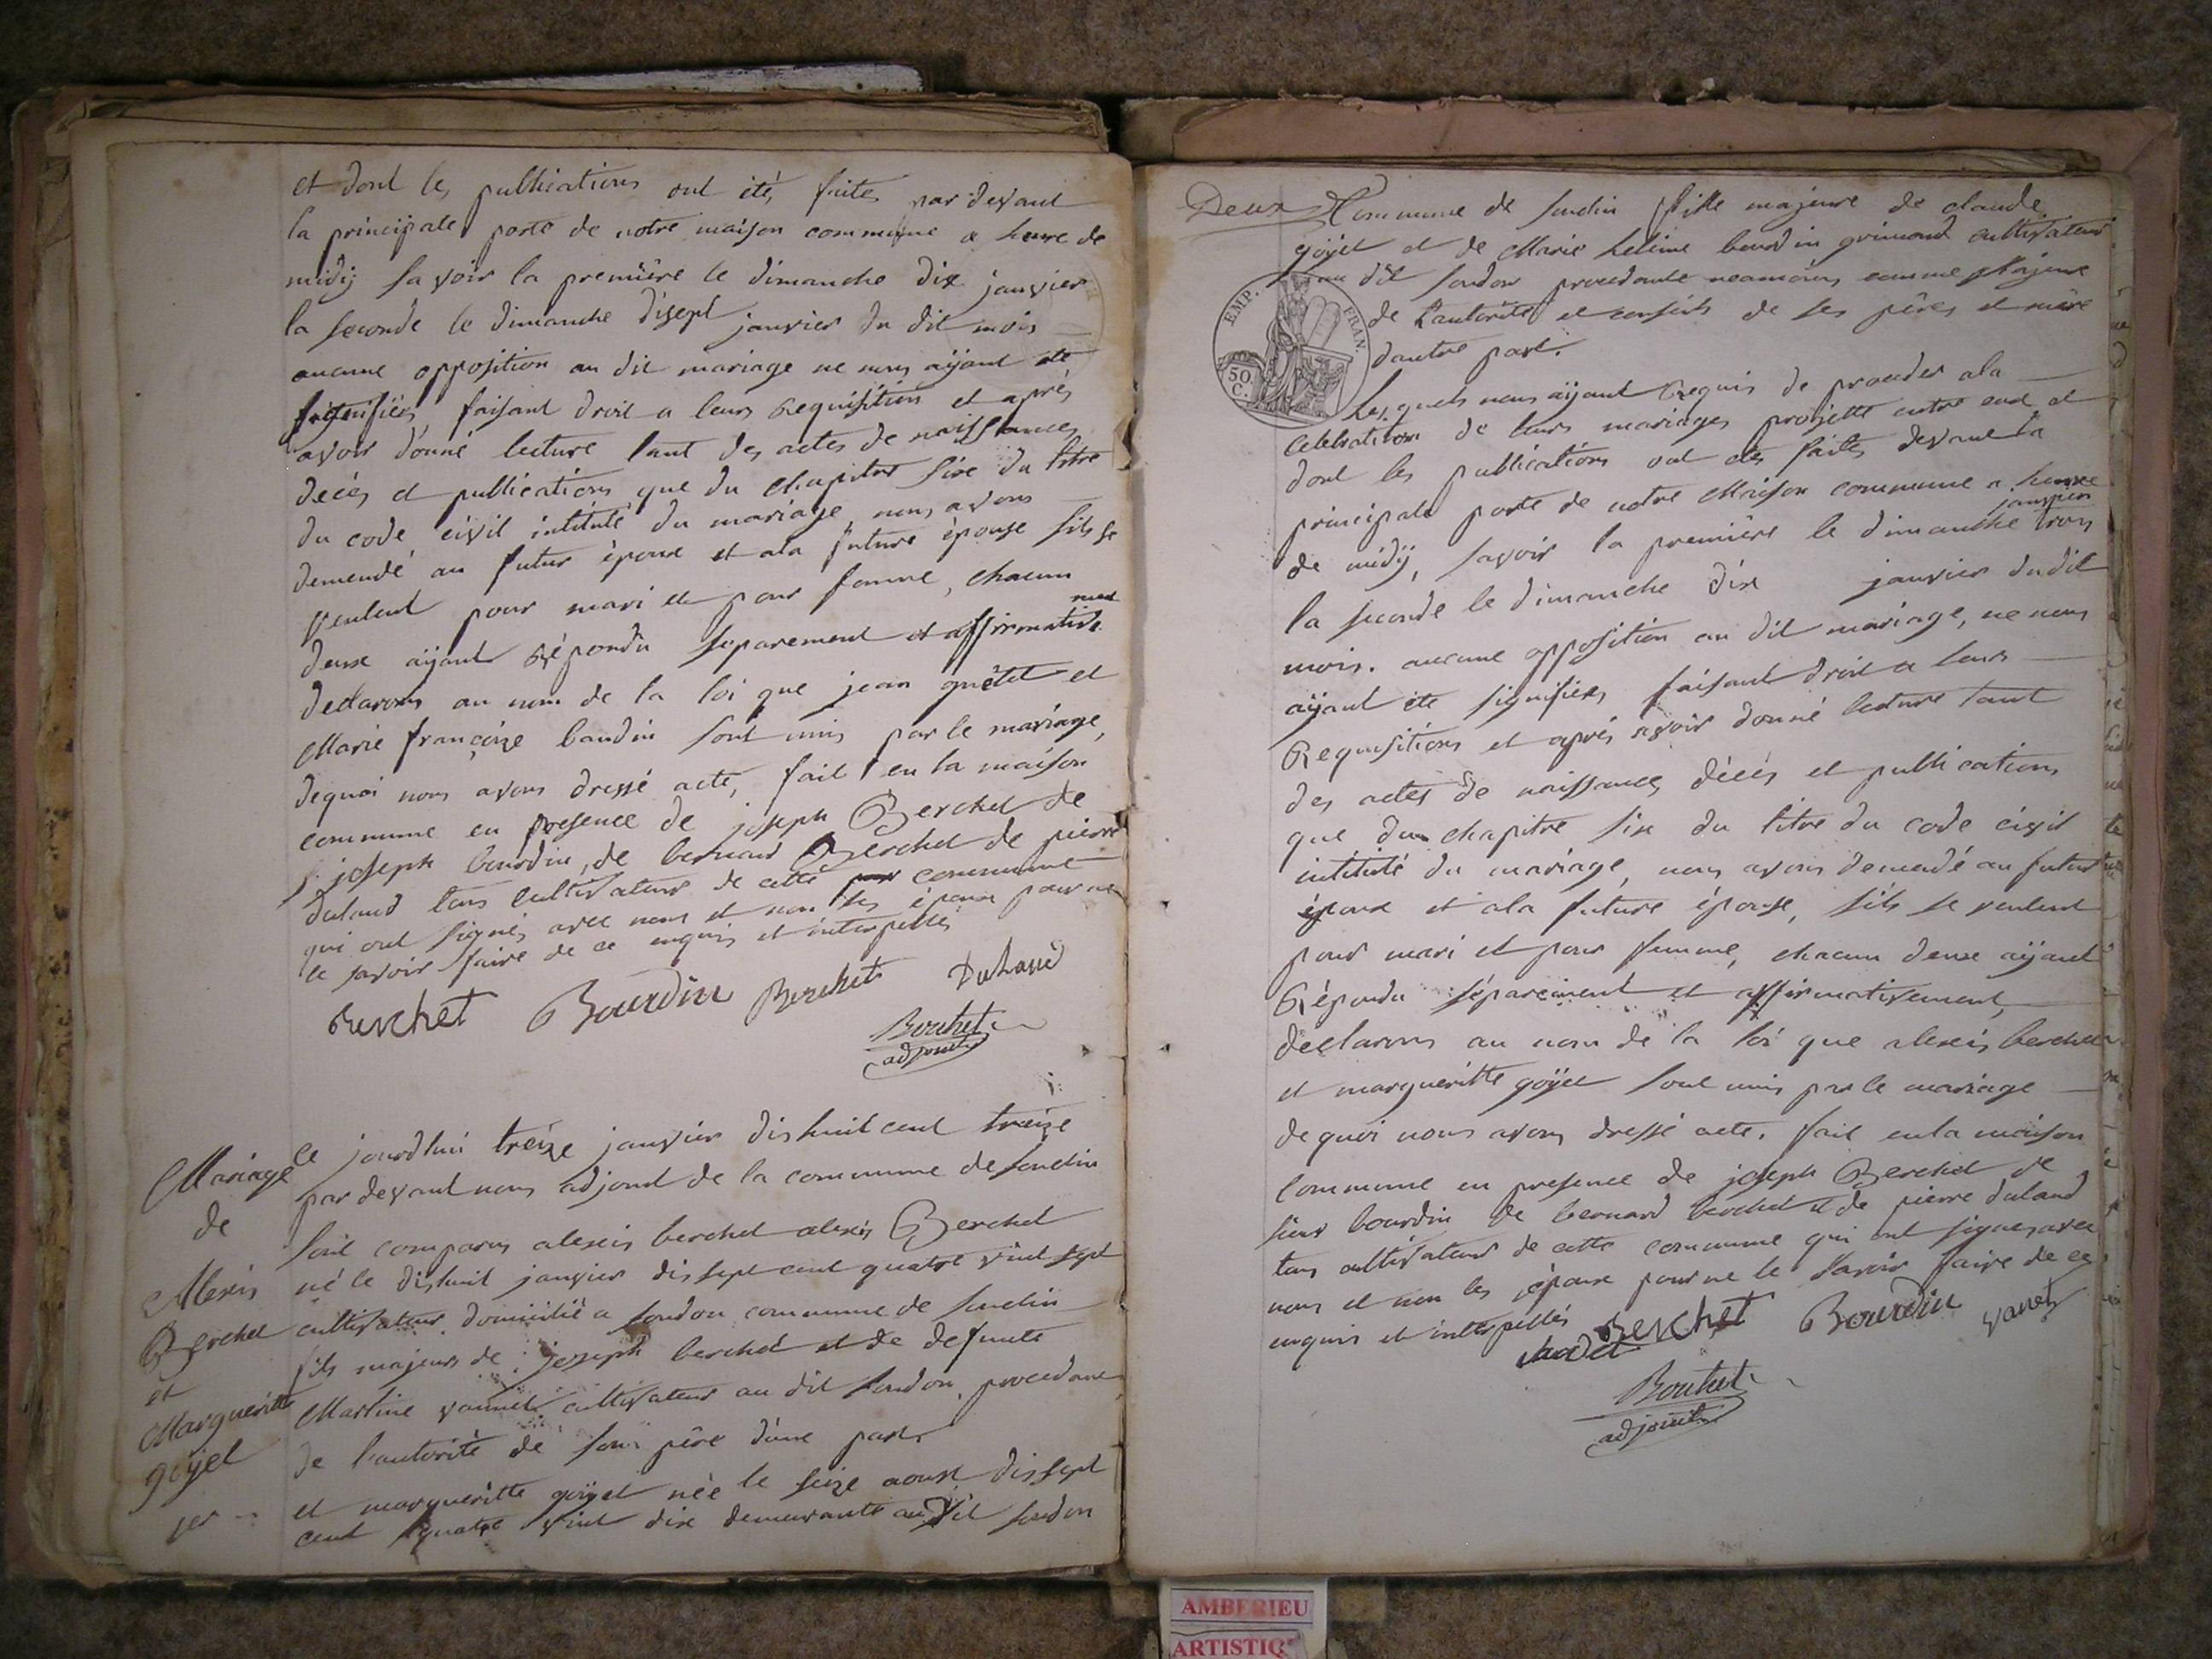 et dont les publications ont été faites par devant
la principale porte de notre maison commune a heure de
midÿ savoir la première le dimanche dix janvier
la seconde le dimanche disept janvier du dit mois
aucune opposition au dit mariage ne nous aÿant ete
signifiés, faisant droit a leurs requisition et après
avoir donné lecture tant des actes de naissances
decès et publications que du chapitre six du titre
du code civil intitulé du mariage, nous avons
demendé au futur époux et ala future épouse sils se
veulent pour mari et pour femme, chacun
deux aÿant répondu separement et affirmative
ment
declarons au nom de la loi que jean guétet et
Marie françoize baudin sont unis par le mariage,
dequoi nous avons dressé acte, fait en la maison
commune en presence de joseph Berchet de
joseph bourdin, de bernard Berchet de pierre
duland tous cultivateurs de cette commune
qui ont signés avec nous et non les époux pour ne
le savoir faire de ce enquis et interpellés
Berchet Bourdin Berchet Duland
Bouchet
adjoint
Mariage
de
Alexis
Berchet
et
Margueritte
goÿet
Ce jourdhui treize janvier dishuit cent treize
par devant nous adjoint de la commune de soudin
sont comparus alexis berchet alexis Berchet
né le dishuit janvier dissept cent quatre vint sept
cultivateur domicilié a soudon commune de soudin
fils majeur de joseph berchet et de defunte
Martine vannet cultivateur au dit soudon, procedant
de l'autorité de son père d'une part
et margueritte goÿet née le seize aoust dissept
cent quatre vint dix demeurante au dit soudon
Deux
Commune de soudin fille majeure de claude
goÿet et de Marie bourdin cultivateur
au dit soudon procedante neamoins comme Majeure
de l'autorité et conseils de ses pères et mère
dautre part.
EMP. FRAN.
50. C.
Lesquels nous aÿant requis de proceder ala
celebration de leurs mariages projetté entre eux et
dont les publications ont etés faites devant la
principale porte de notre Maison commune a heure
de midÿ, savoir la première le dimanche trois
janvier
la seconde le dimanche dix janvier dudit
mois. aucune opposition au dit mariage, ne nous
aÿant ete signifiés, faisant droit a leurs
Requisitions et après avoir donné lecture tant
des actes de naissances, décès et publications
que du chapitre six du titre du code civil
intitulé du mariage, nous avons demendé au futur
époux et ala future épouse, sils se veulent
pour mari et pour femme, chacun deux aÿant
Répondu séparement et affirmativement,
declarons au nom de la loi que alexis berchet
et margueritte goÿet sont unis par le mariage
de quoi nous avons dressé acte. fait en la maison
Commune en presence de joseph Berchet de
sieur bourdin de bernard berchet et de pierre duland
tous cultivateurs de cette commune qui ont signés avec
nous et non les époux pour ne le savoir faire de ce
enquis et interpellés
Berchet Bourdin vanet
Bouchet
adjoint
AMBERIEU
ARTISTIQ